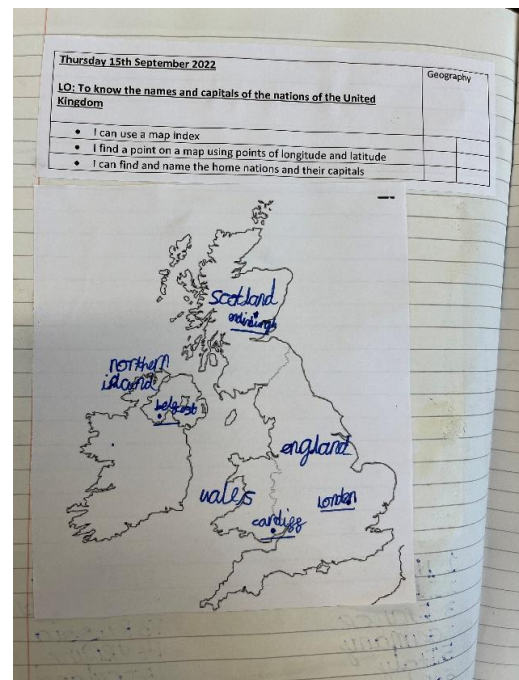 Thursday 15th September 2022
Geography
LO: To know the names and capitals of the nations of the United
Kingdom
• I can use a map index
• I find a point on a map using points of longitude and latitude
• I can find and name the home nations and their capitals
scotland
edinburgh
northern
island
belfast
england
wales
london
cardiff